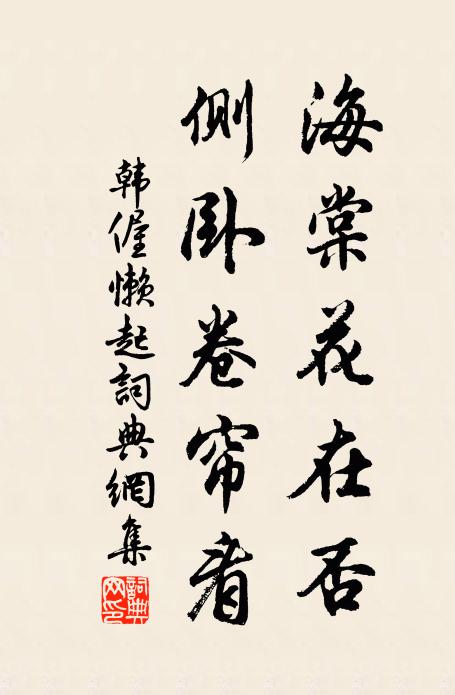 海棠花在否
侧卧卷帘看
韩偓懒起詞典網集
詞典网印